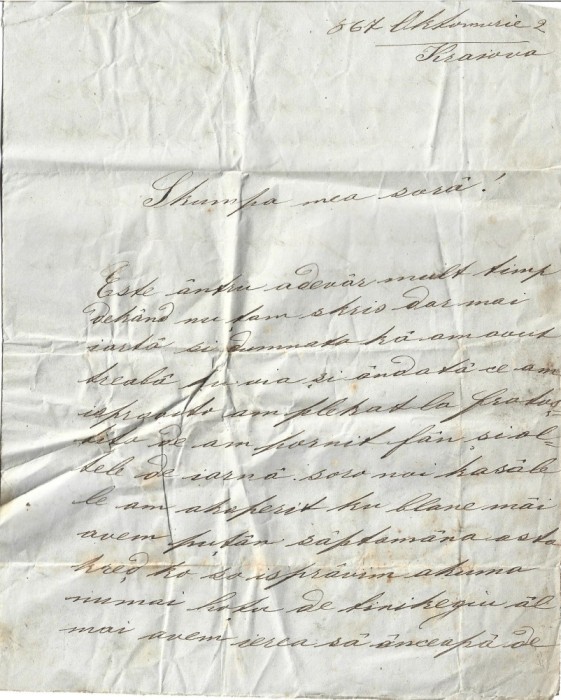 867 Oktomvrie 2
Kraiova
Skumpa mea sorâ!
Este ântru adevâr mult timp
dekând nu tam skris dar mai
iartâ si dumnata kâ am avut
treabâ ku via si ândatâ ce am
isprâvito am plekat la Fratos
tito de am pornit fân si al=
tele de iarnâ soro noi kasâle
le am akoperit ku blane mâi
avem puțân sâptomâna asta
kred ko so isprâvim akuma
numai hoțu de tinikegiu âl
mai avem ierea sâ ânceapâ de